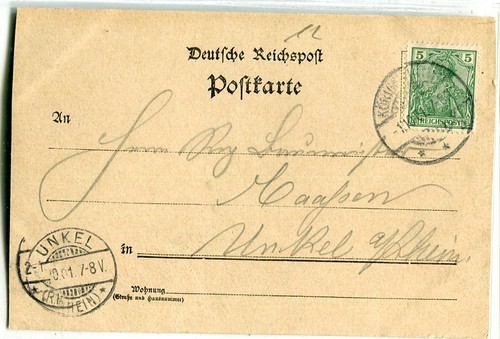 12
Deutsche Reichspost
Postkarte
5 5
REICHSPOST
KÖNIG
An
Herrn Reg Baumeister
Maassen
in Unkel a/Rhein.
UNKEL
2- .0.01. 7-8 V.
* (RHEIN) *
Wohnung
(Straße und Hausnummer)